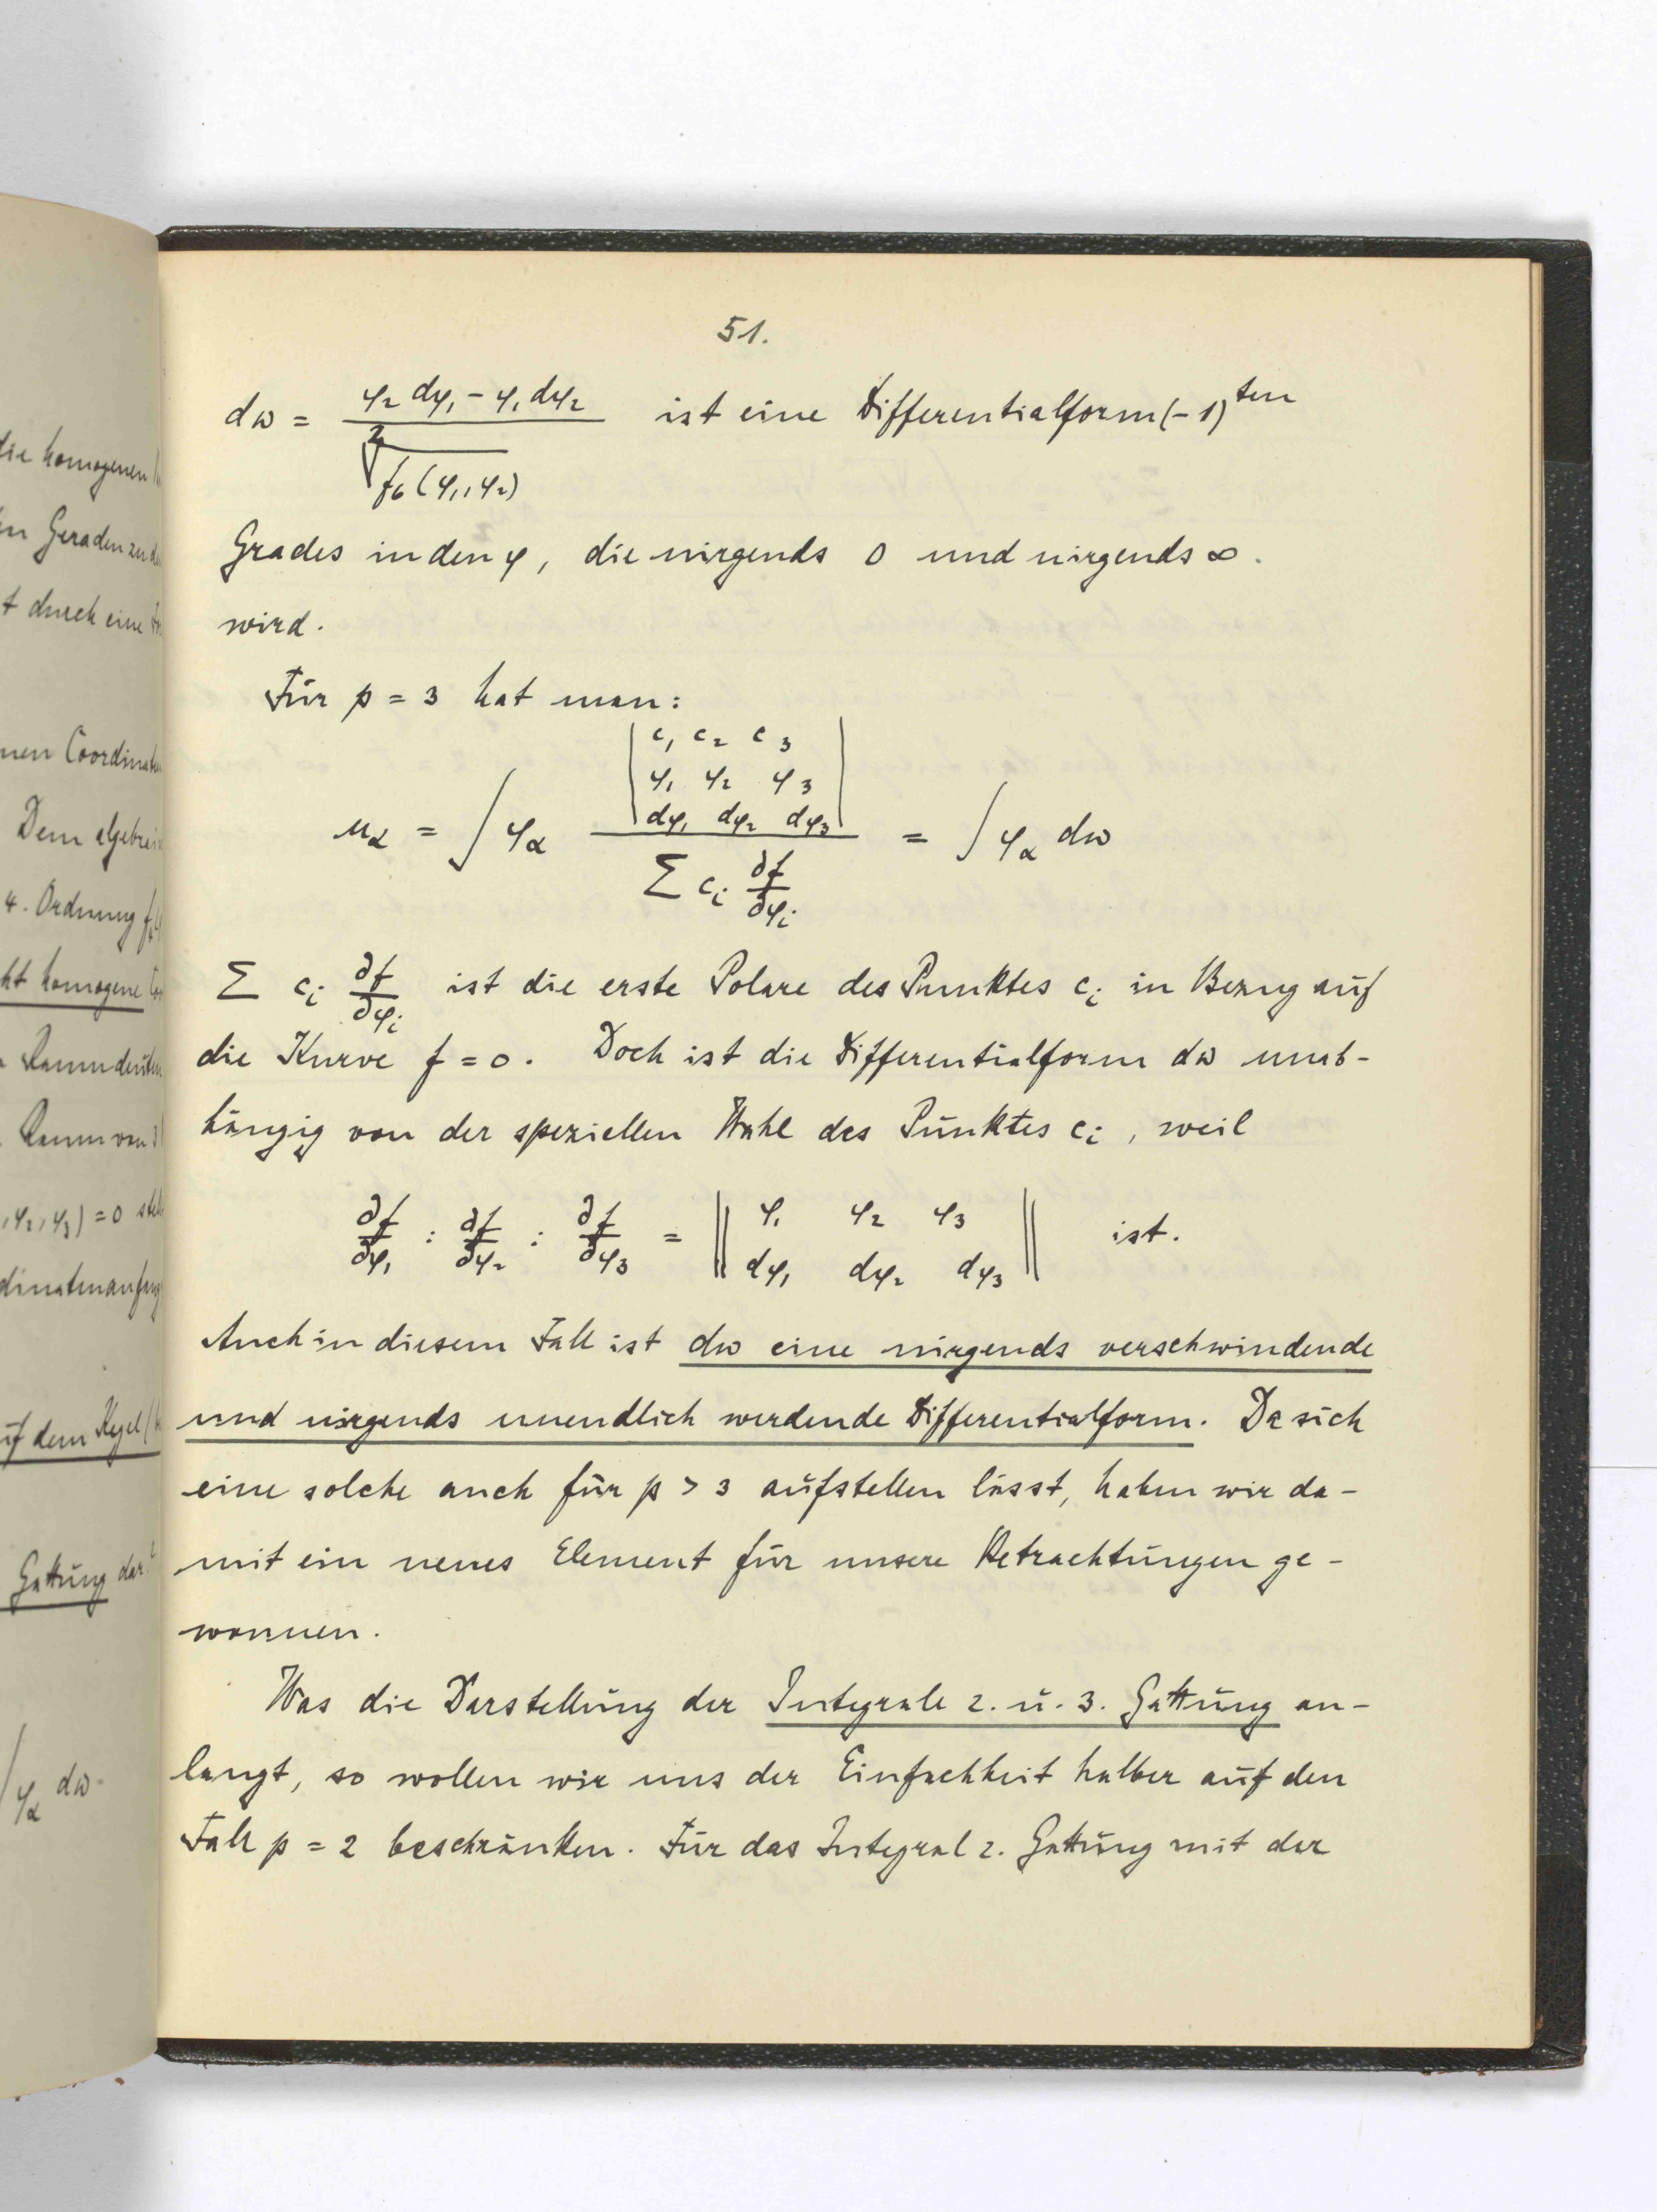 die homogenen
Geraden zu
t durch eine
nen Coordinaten
Dem algebrai
4. Ordnung f
ht homogene
Raum deuten
Raum von
, φ₂, φ₃) = 0
dinatenanfang
auf dem Kegel
Gattung dar
∫ φ_α dω.
51.
dω = (φ₂ dφ₁ - φ₁ dφ₂) / ²√f₆(φ₁, φ₂) ist eine Differentialform (-1)ten
Grades in den φ, die nirgends 0 und nirgends ∞.
wird.
Für p = 3 hat man:
u_α = ∫ φ_α | c₁ c₂ c₃ ; φ₁ φ₂ φ₃ ; dφ₁ dφ₂ dφ₃ | / Σ c_i ∂f/∂φ_i = ∫ φ_α dω
Σ c_i ∂f/∂φ_i ist die erste Polare des Punktes c_i in Bezug auf
die Kurve f = 0. Doch ist die Differentialform dω unab-
hängig von der speziellen Wahl des Punktes c_i, weil
∂f/∂φ₁ : ∂f/∂φ₂ : ∂f/∂φ₃ = || φ₁ φ₂ φ₃ ; dφ₁ dφ₂ dφ₃ || ist.
Auch in diesem Fall ist dω eine nirgends verschwindende
und nirgends unendlich werdende Differentialform. Da sich
eine solche auch für p > 3 aufstellen lässt, haben wir da-
mit ein neues Element für unsere Betrachtungen ge-
wonnen.
Was die Darstellung der Integrale 2. u. 3. Gattung an-
langt, so wollen wir uns der Einfachheit halber auf den
Fall p = 2 beschränken. Für das Integral 2. Gattung mit der